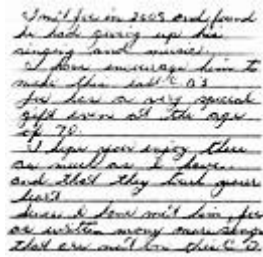 I met Joe in 2005 and found
he had giving up his
singing and music.
I have encourage him to
make this last C D's
Joe has a very special
gift even at the age
of 70.
I hope you enjoy these
as much as I have
and that they touch your
heart
Since I have met him Joe
as written many more songs
that are not on this C D.